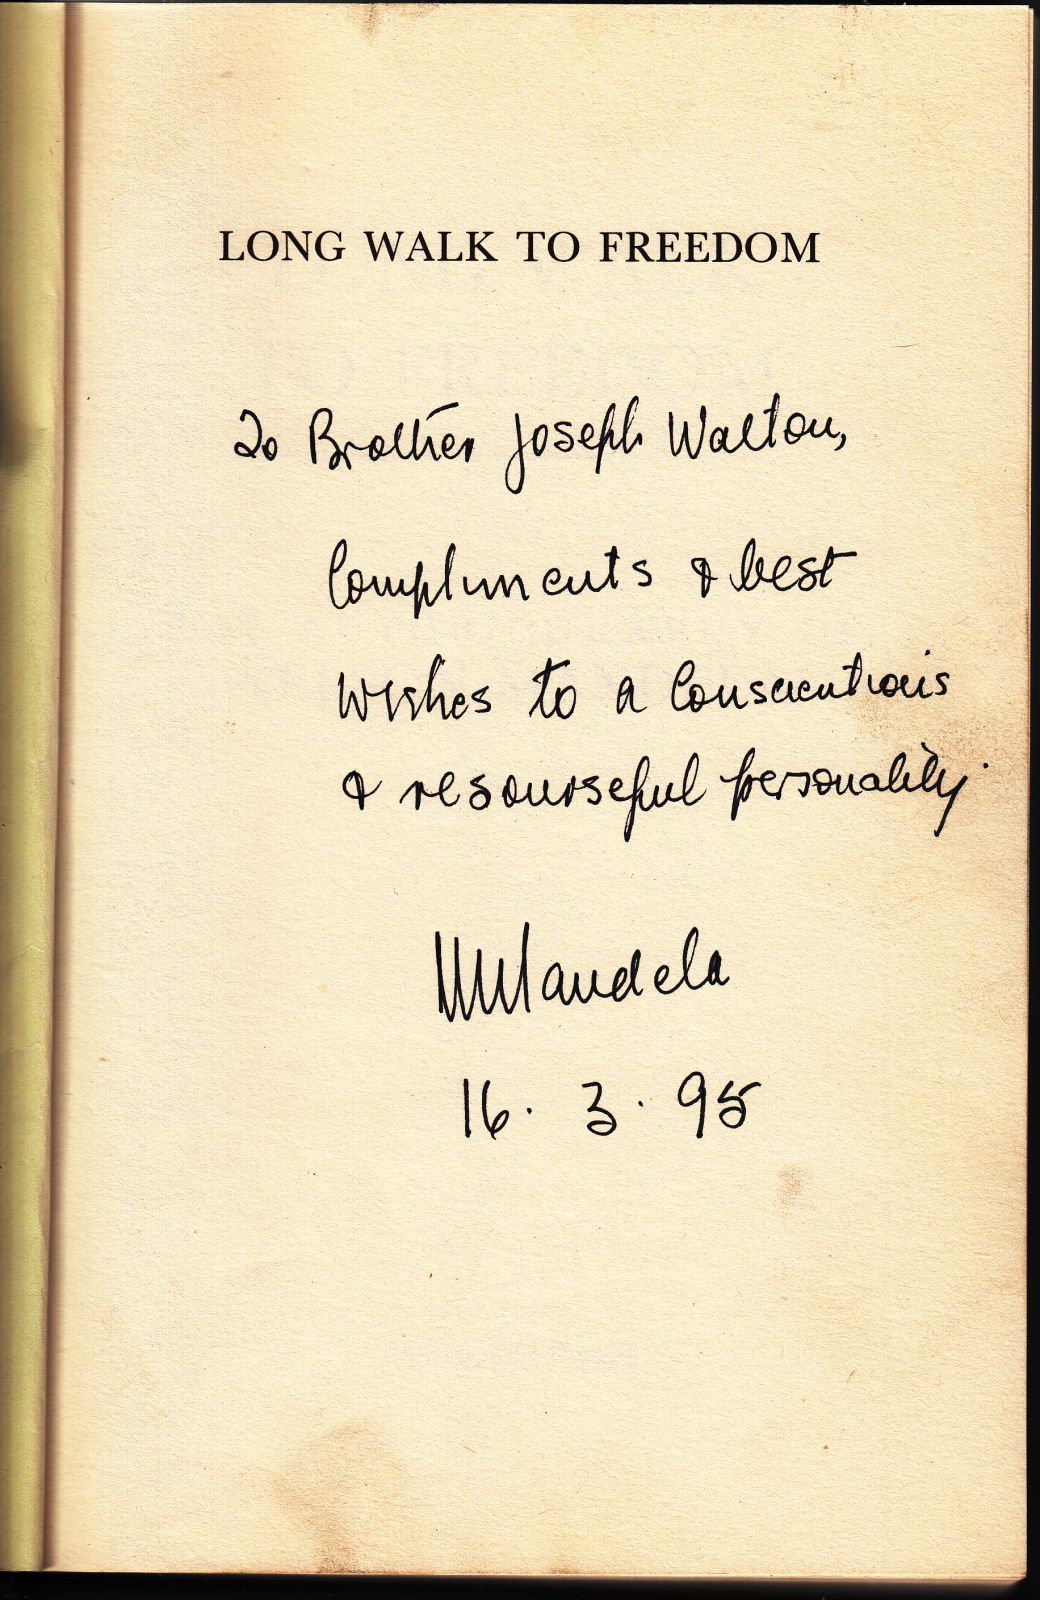 LONG WALK TO FREEDOM
To Brother Joseph Walton,
Compliments & best
wishes to a conscientious
& resourseful personality.
NMandela
16. 3. 95